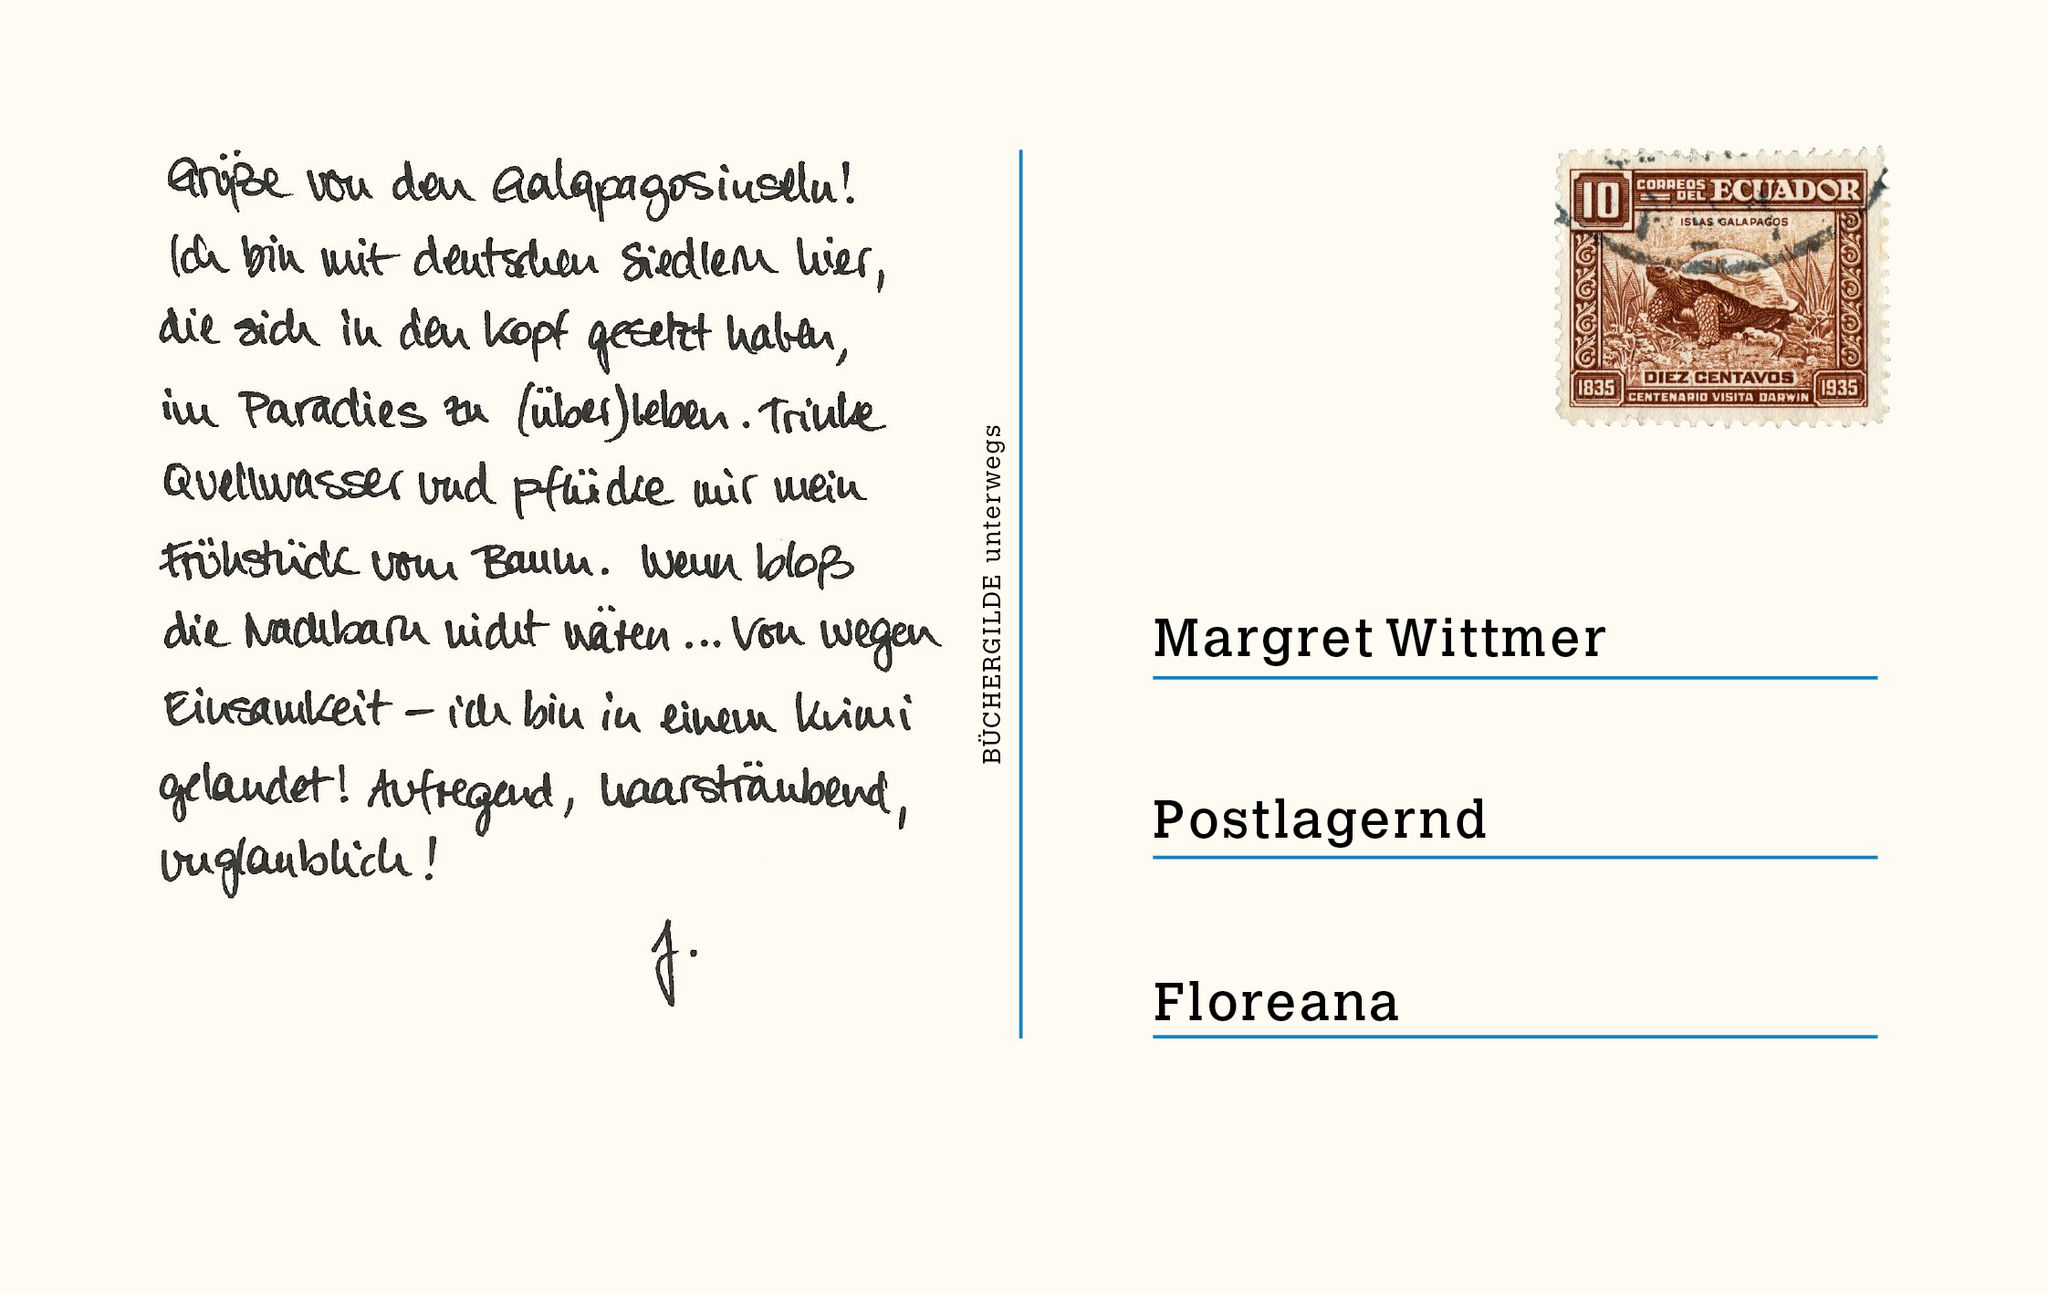 Grüße von den Galapagosinseln!
Ich bin mit deutschen Siedlern hier,
die sich in den Kopf gesetzt haben,
im Paradies zu (über)leben. Trinke
Quellwasser und pflücke mir mein
Frühstück vom Baum. Wenn bloß
die Nachbarn nicht wären... Von wegen
Einsamkeit – ich bin in einem Krimi
gelandet! Aufregend, haarsträubend,
unglaublich!
J.
BÜCHERGILDE unterwegs
10 CORREOS DEL ECUADOR
ISLAS GALAPAGOS
DIEZ CENTAVOS
1835 CENTENARIO VISITA DARWIN 1935
Margret Wittmer
Postlagernd
Floreana